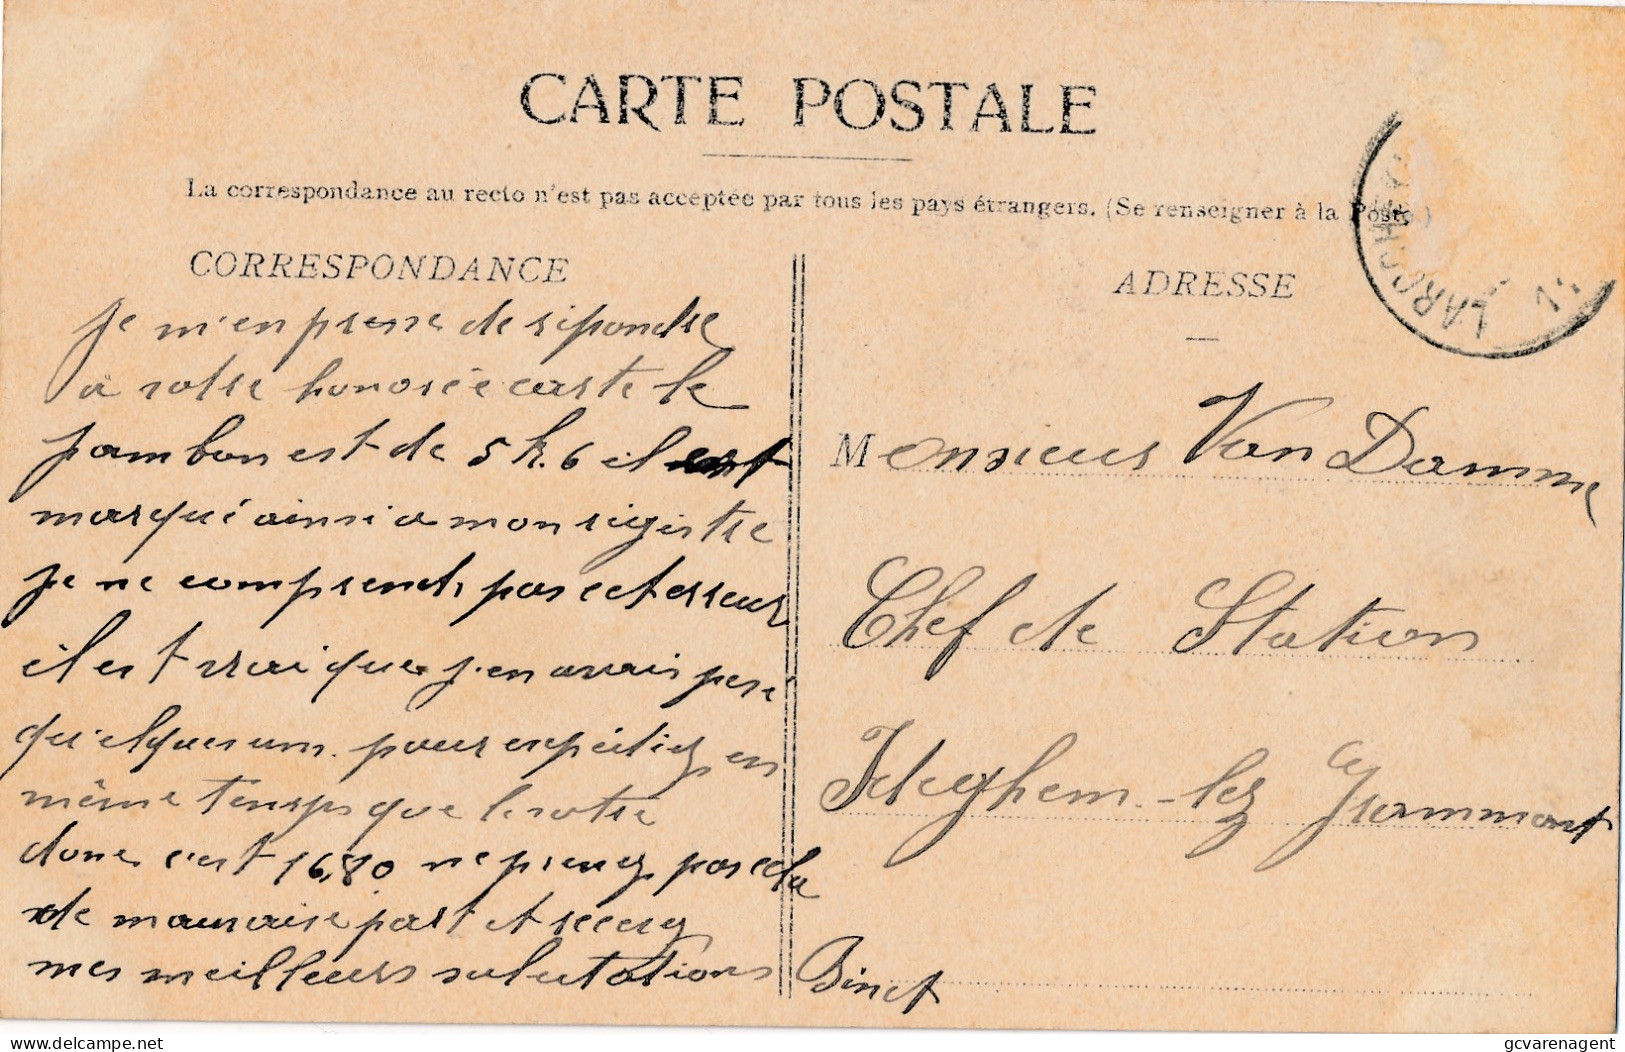 CARTE POSTALE
La correspondance au recto n'est pas acceptée par tous les pays étrangers. (Se renseigner à la Poste.)
CORRESPONDANCE
je m'empresse de répondre
a votre honorée carte le
jambon est de 5 k. 6 il est
marqué ainsi a mon régistre
je ne comprends pas cet erreur
il est vrai que j'en avais pesé
quelques uns pour expédiez en
même temps que le votre
donc c'est 16,80 ne prenez pas cela
de mauvaise part et recevez
mes meilleurs salutations Binet
ADRESSE
LAROCHE
Monsieur Van Damme
Chef de Station
Ideghem-lez Grammont
gcvarenagent